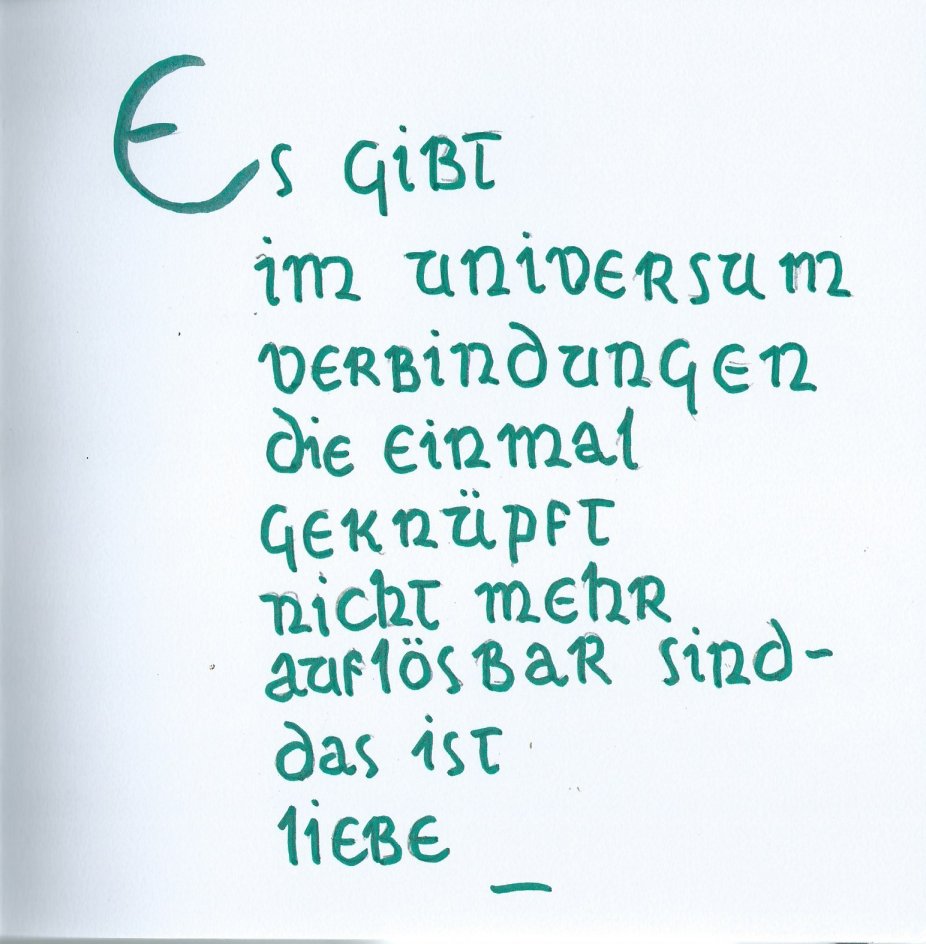 Es gibt
im universum
verbindungen
die einmal
geknüpft
nicht mehr
auflösbar sind-
das ist
liebe _